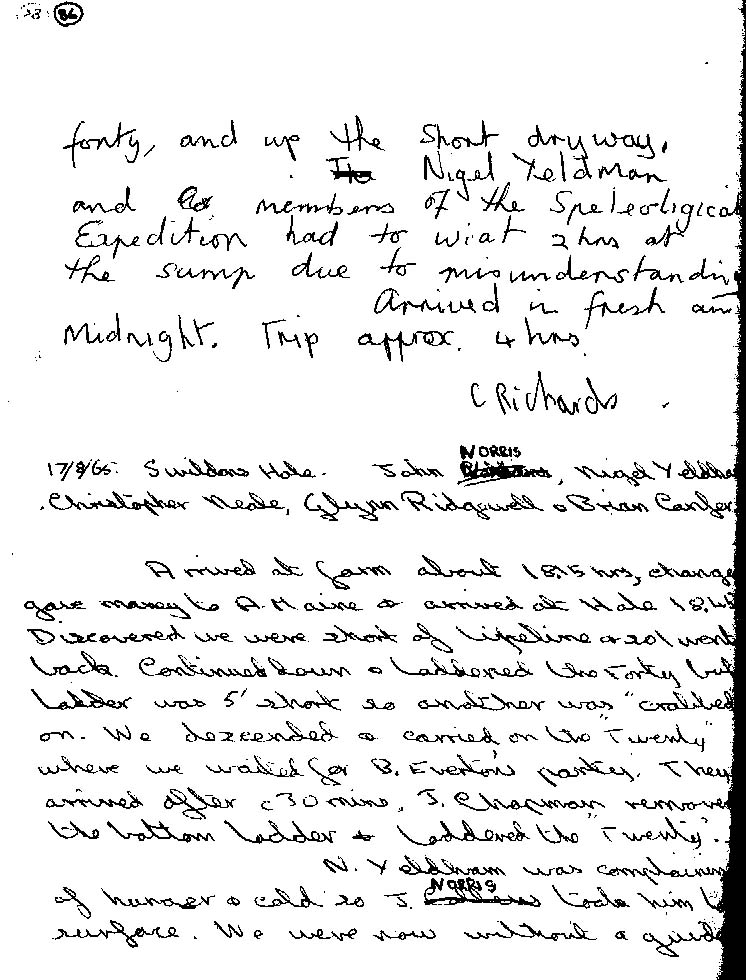 86
forty, and up the short dryway.
Nigel Yeldman
and members of the Speleoligical
Expedition had to wiat 2 hrs at
the sump due to misunderstandin
Arrived in fresh air
Midnight. Trip approx. 4 hrs.
C Richards.
NORRIS
17/8/65. Swildons Hole. John, Nigel Yeldha
Christopher Neale, Glynn Ridgewell & Brian
Arrived at farm about 18.15 hrs, change
gave money to A. Maine & arrived at Hole 18.45
Discovered we were short of lifeline & so I went
back. Continued down & laddered the Forty but
ladder was 5' short so another was "crabbed
on. We descended & carried on the "Twenty"
where we waited for B. Everton's party. They
arrived after c30 mins, J. Chapman remove
the bottom ladder & laddered the "Twenty".
N. Yeldham was complainin
NORRIS
of hunger & cold so J. took him
surface. We were now without a guide